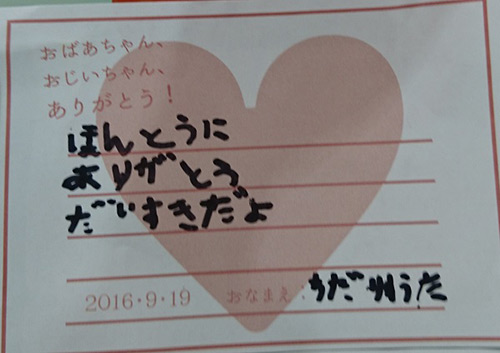 おばあちゃん、
おじいちゃん、
ありがとう！
ほんとうに
ありがとう
だいすきだよ
2016・9・19 おなまえ：うだ